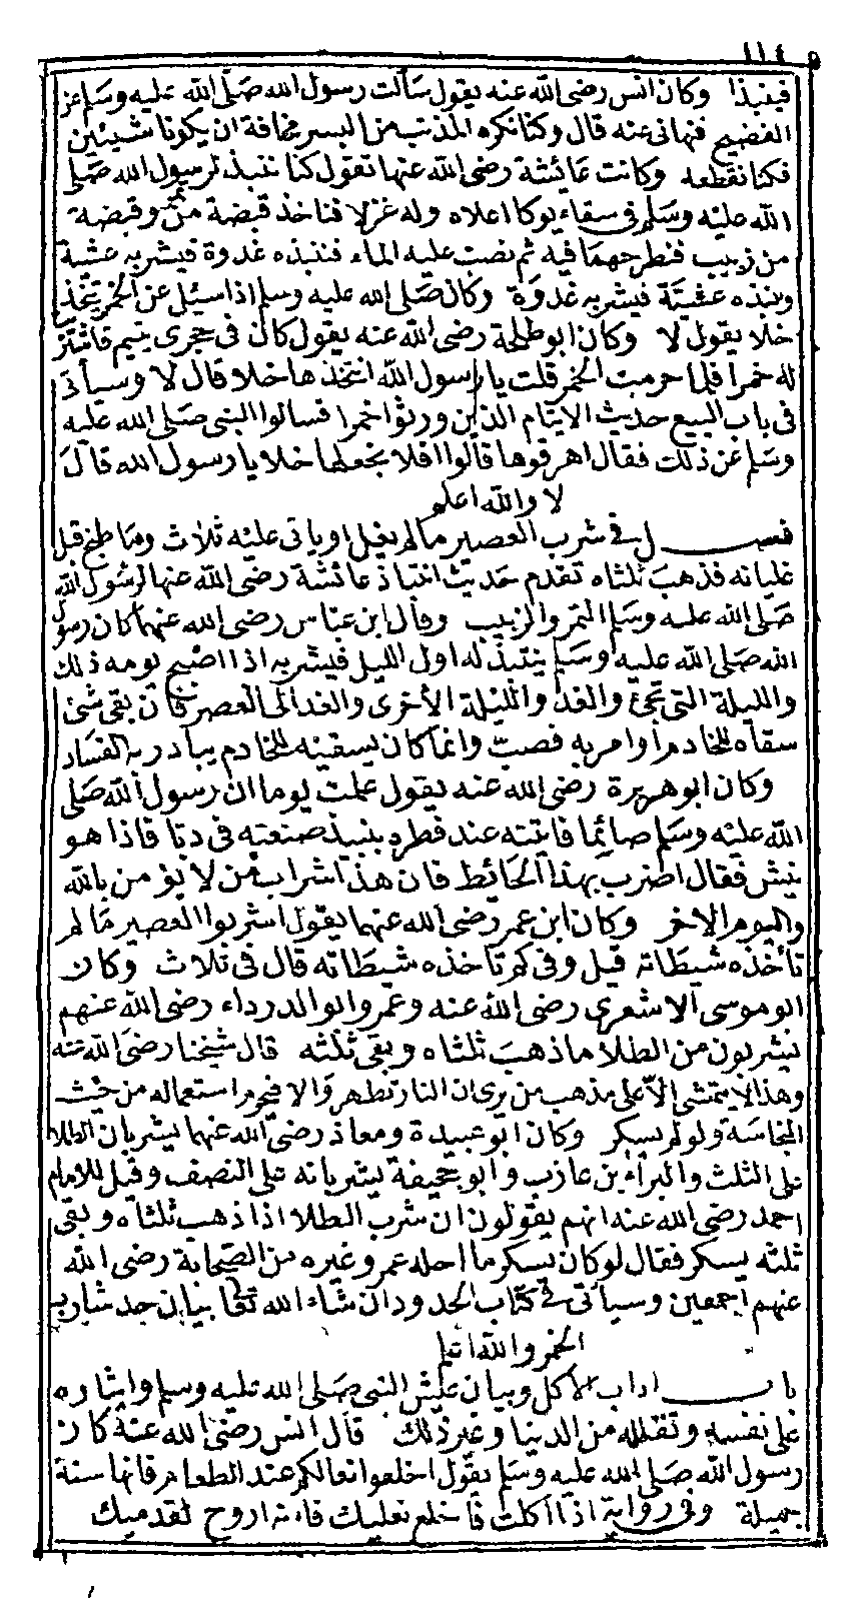 ١١٤
فينبذا وكان انس رضى الله عنه يقول سألت رسول الله صلى الله عليه وسلم عن
الفضيخ فنهانى عنه قال وكنا نكره المذنب من البسر مخافة ان يكونا شيئين
فكنا نقطعه وكانت عائشة رضى الله عنها تقول كنا ننبذ لرسول الله صلى
الله عليه وسلم فى سقاء يوكا اعلاه وله عزلا فناخذ قبضة من تمر وقبضة
من زبيب فنطرحهما فيه ثم نصب عليه الماء فننبذه غدوة فيشربه عشية
وننبذه عشية فيشربه غدوة وكان صلى الله عليه وسلم اذا سيئل عن الخمر يتخذ
خلا يقول لا وكان ابو طلحة رضى الله عنه يقول كان فى حجرى يتيم فاشترى
له خمرا فلما حرمت الخمر قلت يا رسول الله انتخذها خلا قال لا وسيأتى
فى باب البيع حديث الايتام الذين ورثوا خمرا فسالوا النبى صلى الله عليه
وسلم عن ذلك فقال اهرقوها قالوا افلا نجعلها خلا يا رسول الله قال
لا والله اعلم
فصــل فى شرب العصير ما لم يغل او ياتى عليه ثلاث وما طبخ قبل
غليانه فذهب ثلثاه تقدم حديث انتباذ عائشة رضى الله عنها لرسول الله
صلى الله عليه وسلم التمر والزبيب وقال ابن عباس رضى الله عنهما كان رسول
الله صلى الله عليه وسلم ينتبذ له اول الليل فيشربه اذا اصبح يومه ذلك
والليلة التى تجئ والغد والليلة الأخرى والغد الى العصر فان بقى شئ
سقاه للخادم او امر به فصب وانما كان يسقيه للخادم يبادر به الفساد
وكان ابو هريرة رضى الله عنه يقول علمت يوما ان رسول الله صلى
الله عليه وسلم صائما فاتيته عند فطره بنبيذ صنعته فى دبا فاذا هو
ينش فقال اضرب بهذا الحائط فان هذا شراب من لا يؤمن بالله
واليوم الاخر وكان ابن عمر رضى الله عنهما يقول اشربوا العصير ما لم
تأخذه شيطانه قيل وفى كم تاخذه شيطانه قال فى ثلاث وكان
ابو موسى الاشعرى رضى الله عنه وعمر وابو الدرداء رضى الله عنهم
يشربون من الطلا ما ذهب ثلثاه وبقى ثلثه قال شيخنا رضى الله عنه
وهذا لا يتمشى الا على مذهب من يرى ان النار تطهر والا فيحرم استعماله من حيث
النجاسة ولو لم يسكر وكان ابو عبيدة ومعاذ رضى الله عنهما يشربان الطلا
على الثلث والبراء بن عازب وابو جحيفة يشربانه على النصف وقيل للامام
احمد رضى الله عنه انهم يقولون ان شرب الطلا اذا ذهب ثلثاه وبقى
ثلثه يسكر فقال لو كان يسكر ما احله عمر وغيره من الصحابة رضى الله
عنهم اجمعين وسيأتى فى كتاب الحدود ان شاء الله تعالى بيان حد شارب
الخمر والله اعلم
بــاب اداب الأكل وبيان عيش النبى صلى الله عليه وسلم وايثاره
على نفسه وتقلله من الدنيا وغير ذلك قال انس رضى الله عنه كان
رسول الله صلى الله عليه وسلم يقول اخلعوا نعالكم عند الطعام فانها سنة
جميلة وفى رواية اذا اكلت فاخلع نعليك فانه اروح لقدميك